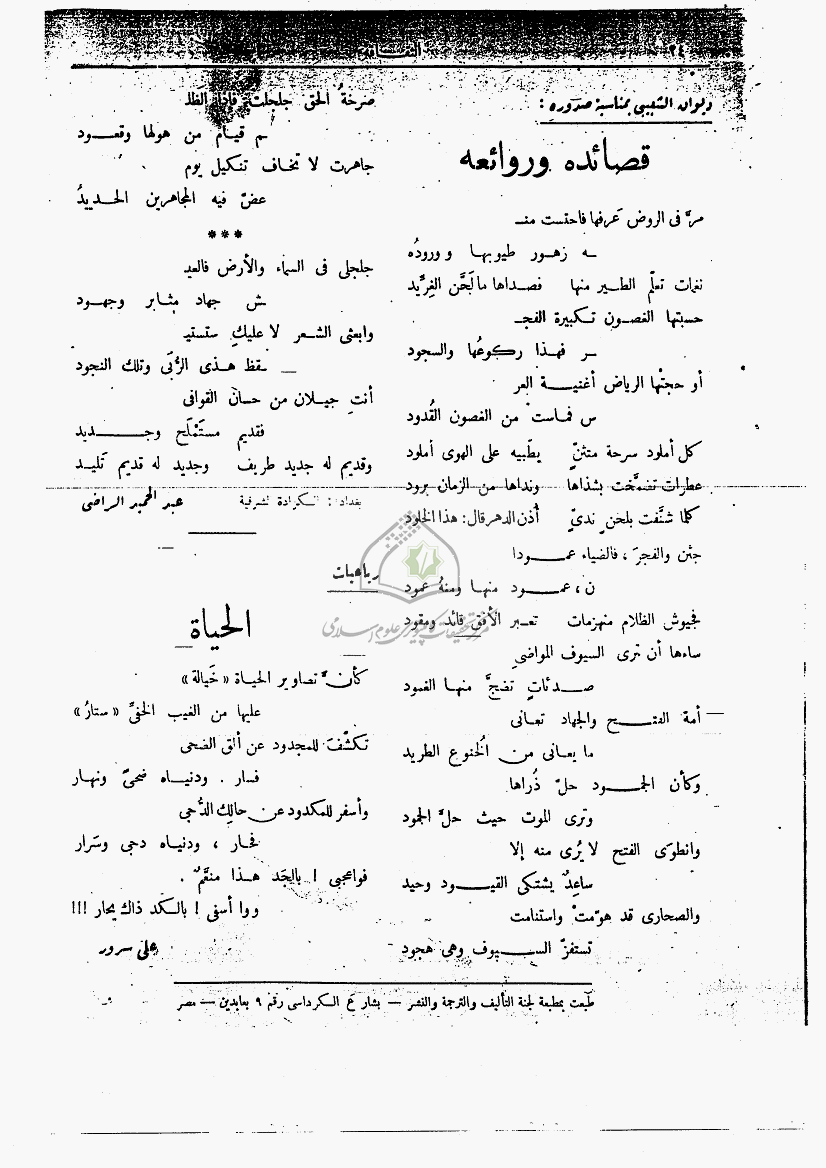 ٢٤
الثقافة
ديوان الشبيبي بمناسبة صدوره :
قصائده وروائعه
مرَّ فى الروض عَرفها فاحتست منـ
ـه زهور طيوبها ووروده
نغمات تعلّم الطير منها فصداها ما لَحَّن الغِرِّيد
حسبتها الغصون تكبيرة الفجـ
ـر فهذا ركوعُها والسجود
أو حجتْها الرياض أغنيـة العر
س فماست من الغصون القُدود
كل أملود سرحة متثنٍّ يطّبيه على الهوى أملود
عطرات تضمَّخت بشذاها ونداها من الزمان برود
كلما شنَّفت بلحن ندىٍّ أُذن الدهر قال: هذا الخلود
جئن والفجرَ ، فالضياء عمودا
ن ، عمود منها ومنهُ عمود
فجيوش الظلام منهزمات تعبر الأفق قائد ومقود
ساءها أن ترى السيوف المواضى
صـدئاتٍ تضجَّ منها الغمود
أمة الفتـح والجهاد تعانى
ما يعانى من الخنوع الطريد
وكأن الجمود حلّ ذُراها
وترى الموت حيث حلَّ الجمود
وانطوَى الفتح لا يُرى منه إلا
ساعدٌ يشتكى القيـود وحيد
والصحارى قد هوّمتْ واستنامت
تستفزّ السـيوف وهى هجود
صرخةُ الحق جلجلت فإذا الظلـ
ـم قيام من هولها وقعـود
جاهرت لا تخاف تنكيل يوم
عضّ فيه المجاهرين الحديدُ
***
جلجلى فى السماء والأرض فالعيـ
ـش جهاد مثابر وجهود
وابعثى الشعر لا عليكِ ستستيـ
ـقظ هذى الرُّبَى وتلك النجود
أنتِ جيـلان من حسان القوافى
فقديم مستَمْلَح وجـديد
وقديم له جديد طريف وجديد له قديم تَليـد
بغداد : الكرادة الشرقية عبد الحميد الراضى
رباعيات
الحياة
كأنَّ تصاوير الحياة « خَيالة »
عليها من الغيب الخفىِّ « ستارُ »
تكشّفَ للمجدود عن ألق الضحى
فسار . ودنيـاه ضحىً ونهار
وأسفر للمكدود عن حالِك الدُّجى
فحار ، ودنيـاه دجى وسَرار
فواعجبى ! بالجَد هـذا منعَّمٌ .
ووا أسفى ! بالكد ذاك يحار !!!
على سرور
طبعت بمطبعة لجنة التأليف والترجمة والنشر — بشارع الكرداسى رقم ٩ بعابدين — مصر